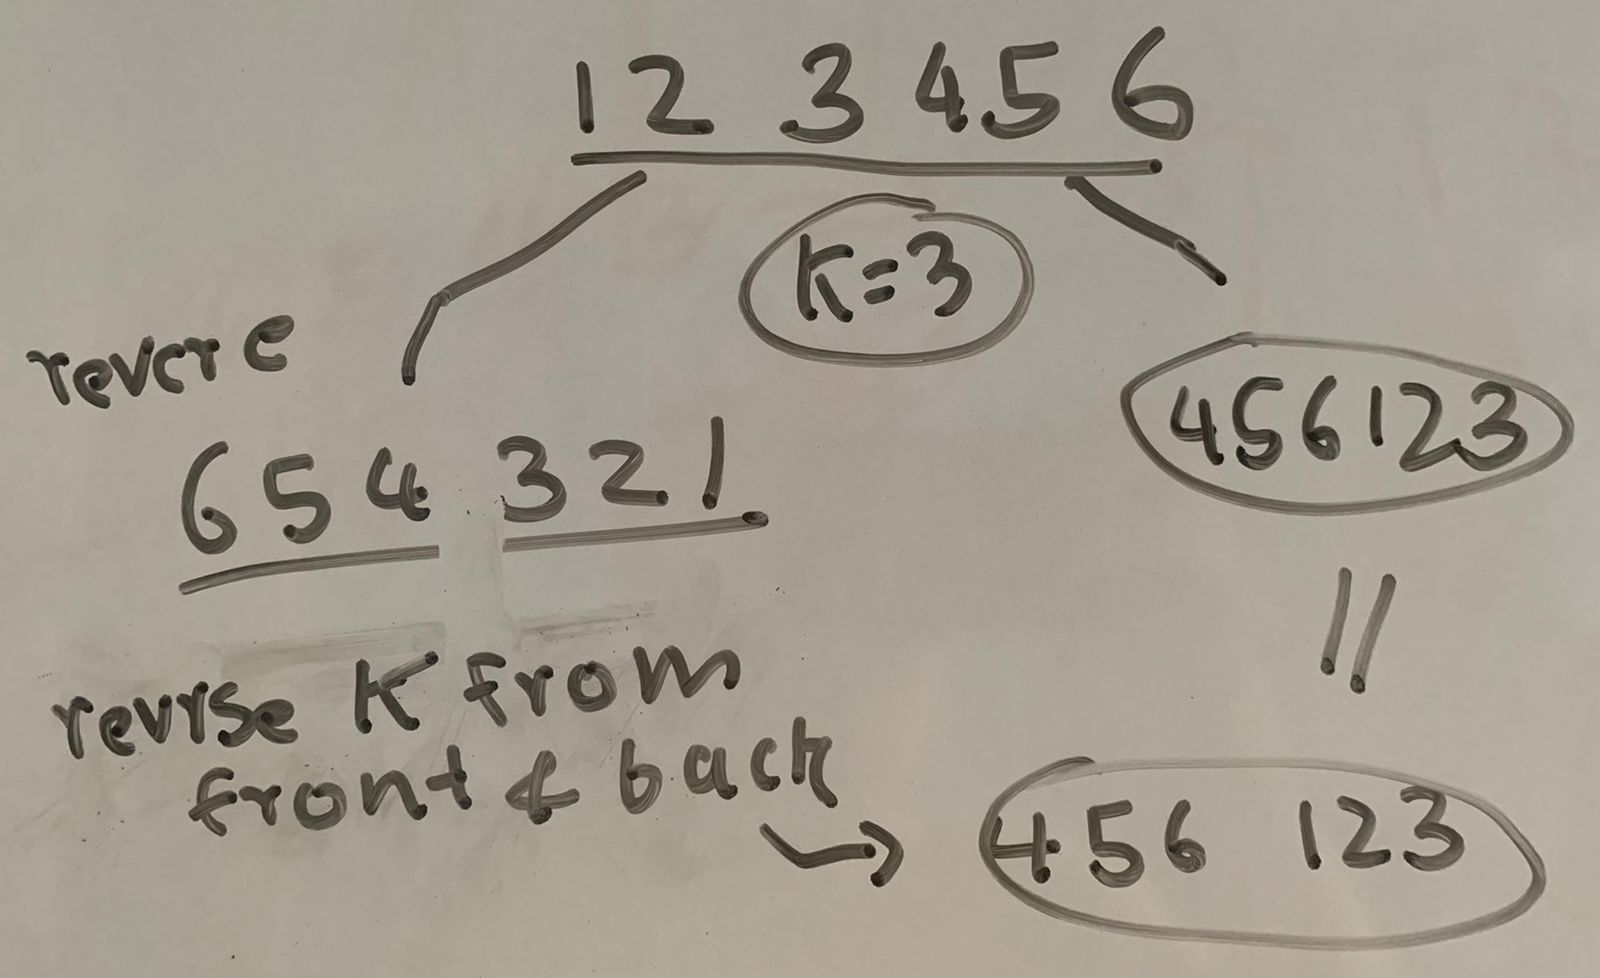 12 3 4 5 6
K=3
revere
456123
654 321
revrse K from
front & back
456 123